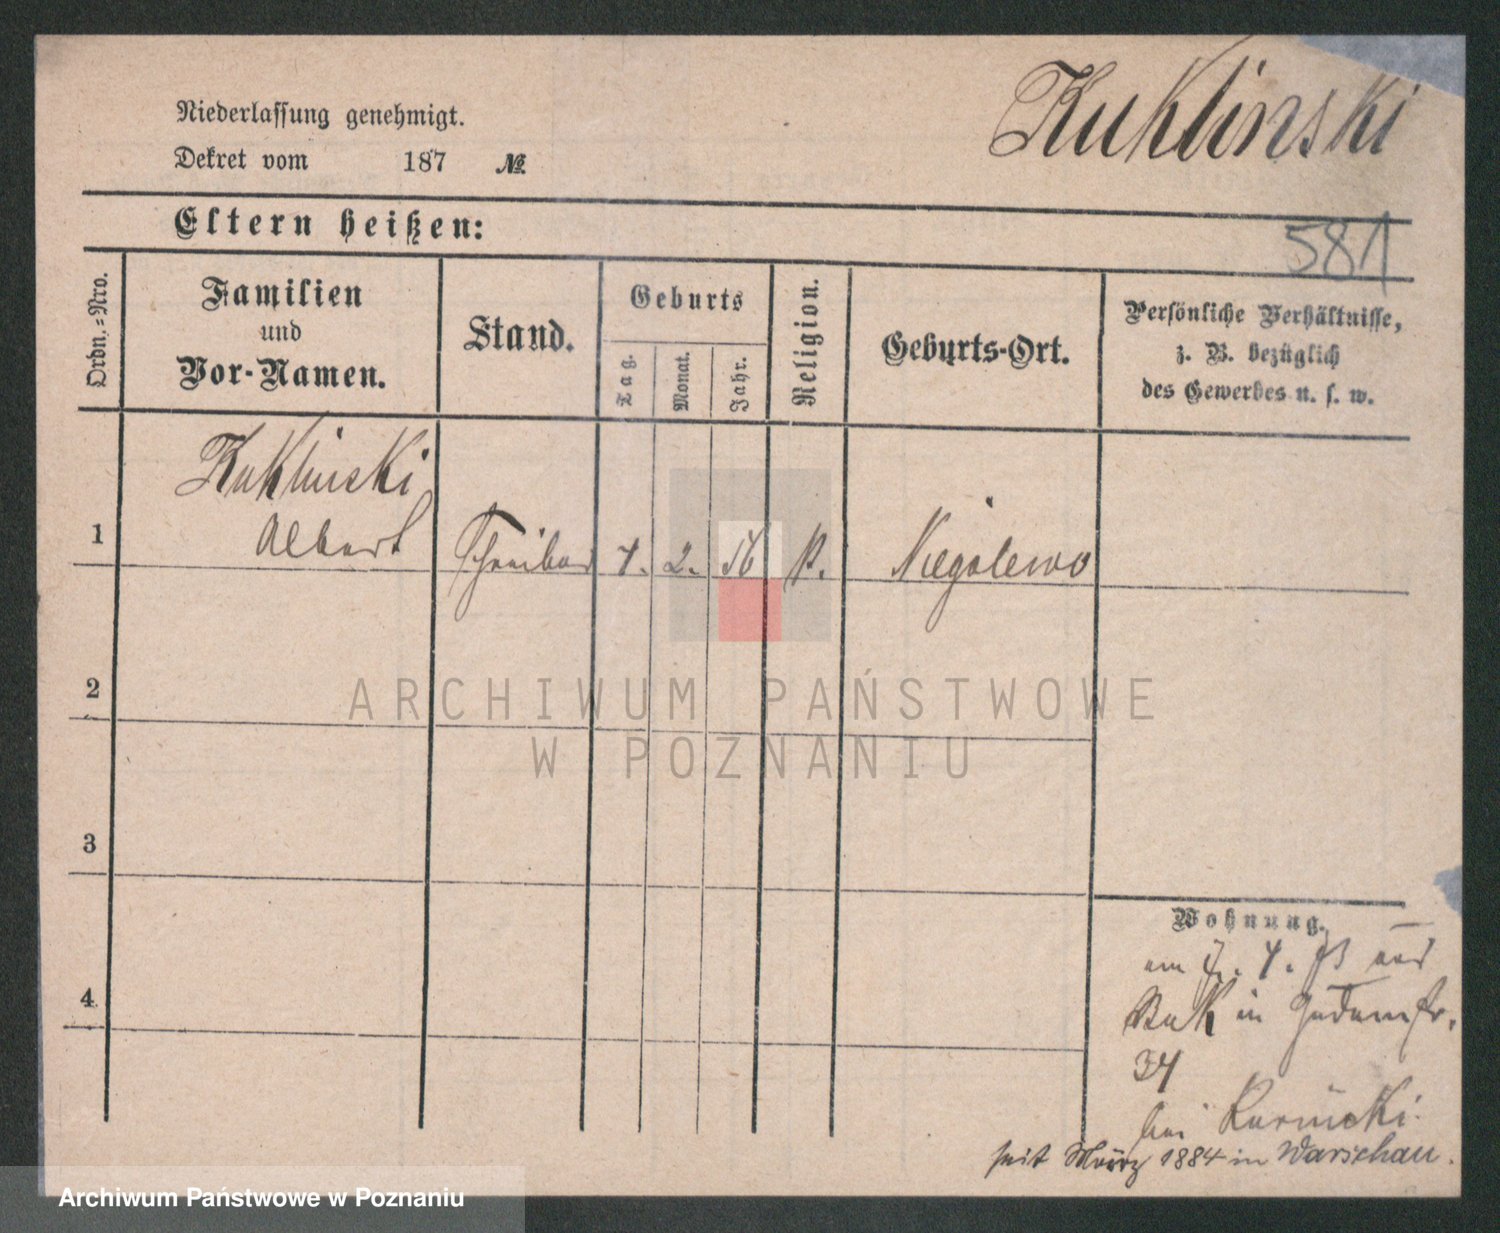 Kuklinski
Niederlassung genehmigt.
Dekret vom 187 №
Eltern heißen:
581
Ordn.=Nro.
Familien
und
Vor-Namen.
Stand.
Geburts
Tag.
Monat.
Jahr.
Religion.
Geburts-Ort.
Persönliche Verhältnisse,
z. B. bezüglich
des Gewerbes u. s. w.
Kuklinski
1 Albert Schreiber 2. 56 k. Niegolewo
2
ARCHIWUM PAŃSTWOWE
W POZNANIU
3
Wohnung.
am
4
Buk in
34
bei
seit März 1884 in Warschau.
Archiwum Państwowe w Poznaniu